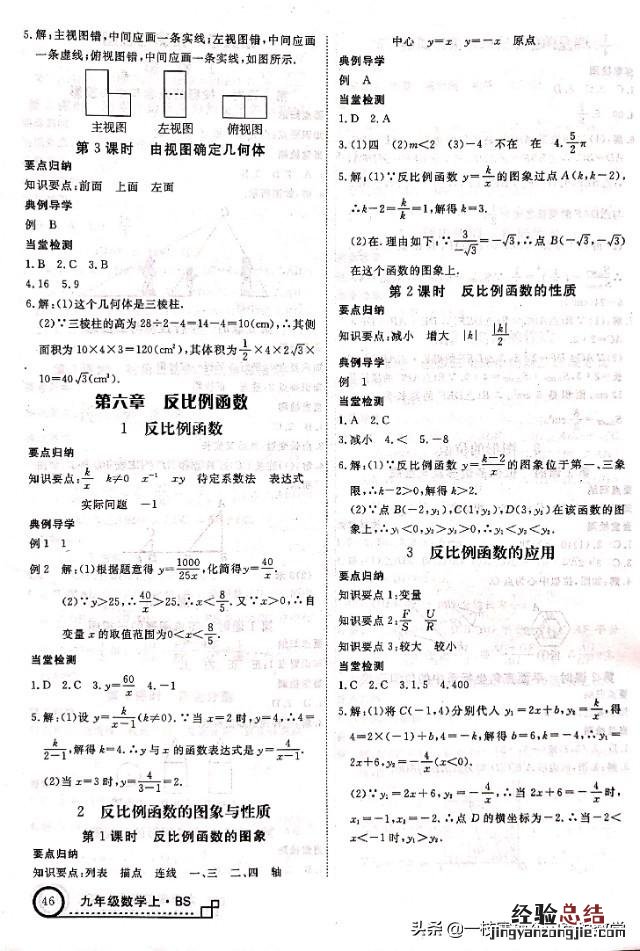 5.解:主视图错,中间应画一条实线;左视图错,中间应画
一条虚线;俯视图错,中间应画一条实线,如图所示.
主视图 左视图 俯视图
第3课时 由视图确定几何体
要点归纳
知识要点:前面 上面 左面
典例导学
例 B
当堂检测
1.B 2.C 3.B
4.16 5.9
6.解:(1)这个几何体是三棱柱.
(2)∵三棱柱的高为28÷2-4=14-4=10(cm),∴其侧
面积为10×4×3=120(cm²),其体积为1/2×4×2√3×
10=40√3(cm³).
第六章 反比例函数
1 反比例函数
要点归纳
知识要点:k/x k≠0 x⁻¹ xy 待定系数法 表达式
实际问题 -1
典例导学
例1 1
例2 解:(1)根据题意得y=1000/25x,化简得y=40/x.
(2)∵y>25,∴40/x>25.∴x<8/5.又∵x>0,∴自
变量x的取值范围为0<x<8/5.
当堂检测
1.D 2.C 3.y=60/x 4.-1
5.解:(1)设y=k/(x-1)(k≠0).∵当x=2时,y=4,∴4=
k/(2-1),解得k=4.∴y与x的函数表达式是y=4/(x-1).
(2)当x=3时,y=4/(3-1)=2.
2 反比例函数的图象与性质
第1课时 反比例函数的图象
要点归纳
知识要点:列表 描点 连线 一、三 二、四 轴
46 九年级数学上·BS
中心 y=x y=-x 原点
典例导学
例 A
当堂检测
1.D 2.A
3.(1)四 (2)m<2 (3)-4 不在 在 4.5/2π
5.解:(1)∵反比例函数y=k/x的图象过点A(k,k-2),
∴k-2=k/k=1,解得k=3.
(2)在.理由如下:∵3/-√3=-√3,∴点B(-√3,-√3)
在这个函数的图象上.
第2课时 反比例函数的性质
要点归纳
知识要点:减小 增大 |k| |k|/2
典例导学
例 1
当堂检测
1.A 2.C
3.减小 4.< 5.-8
6.解:(1)∵反比例函数y=(k-2)/x的图象位于第一、三象
限,∴k-2>0,解得k>2.
(2)∵点B(-2,y₁),C(1,y₂),D(3,y₃)在该函数的图
象上,∴y₁<0,y₂>y₃>0,∴y₁<y₃<y₂.
3 反比例函数的应用
要点归纳
知识要点1:变量
知识要点2:F/S U/R
知识要点3:较大 较小
当堂检测
1.C 2.C 3.1.5 4.400
5.解:(1)将C(-1,4)分别代入y₁=2x+b,y₂=k/x,得
4=2×(-1)+b,4=-k,解得b=6,k=-4,∴y₁=
2x+6,y₂=-4/x(x<0).
(2)∵y₁=2x+6,y₂=-4/x,∴当2x+6=-4/x时,
x₁=-1,x₂=-2.∴点D的横坐标为-2.∴当-2<
x<-1时,y₁>y₂.
经验总结
www.jingyanzongjie.com